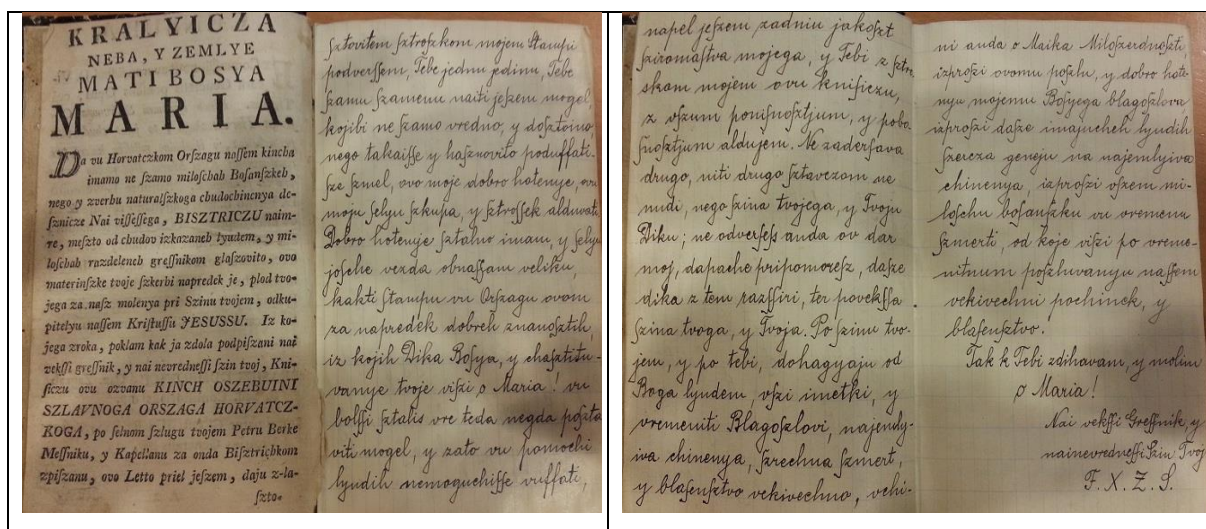 KRALYICZA
NEBA, Y ZEMLYE
MATI BOSYA
MARIA.
Da vu Horvatczkom Orſzagu naſſem kincha
imamo ne ſzamo miloſchah Boſanſzkeh,
nego y zverhu naturalſzkoga chudochinenya de-
ſznicze Nai viſſeſſega, BISZTRICZU naim-
re, meſzto od chudov izkazaneh lyudem, y mi-
loſchah razdeleneh greſſnikom glaſzovito, ovo
materinſzke tvoje ſzkerbi napredek je, plod tvo-
jega za naſz molenya pri Szinu tvojem, odku-
pitelyu naſſem Kriſtuſſu JESUSSU. Iz ko-
jega zroka, poklam kak ja zdola podpiſzani nai
vekſſi greſſnik, y nai nevredneſſi ſzin tvoj, Kni-
ſiczu ovu ozvanu KINCH OSZEBUINI
SZLAVNOGA ORSZAGA HORVATCZ-
KOGA, po ſelnom ſzlugu tvojem Petru Berke
Meſſniku, y Kapellanu za onda Biſztrichkom
zpiſzanu, ovo Letto priel jeſzem, daju z-la-
ſzto-
ſztovitem ſztroſzkom mojem Stampi
podverſſem, Tebe jednu jedinu, Tebe
ſzamu ſzamenu naiti jeſzem mogel,
kojibi ne ſzamo vredno, y doſztoino,
nego takaiſſe y haſznovito poduffati.
ſze ſzmel, ovo moje dobro hotenye, ovu
moju ſelyu ſzkupa, y ſztroſſek alduvati.
Dobro hotenye ſztalno imam, y ſelyu
joſſche vezda obnaſſam veliku,
kakti Stampu vu Orſzagu ovom
za napredek dobreh znanoſztih,
iz kojih Dika Boſya, y chaſztitu-
vanye tvoje viſzi o Maria! vu
bolſſi ſztalis vre teda negda poſzta
viti mogel, y zato vu pomochi
lyudih nemoguchiſſe vuffati,
napel jeſzem zadniu jakoſzt
ſziromaſtva mojega, y Tebi z ſztro
skom mojem ovu kniſiczu,
z oſzum poniſnoſztjum, y pobo
ſnoſztjum aldujem. Ne zaderſava
drugo, niti drugo ſztavczom ne
nudi, nego ſzina tvojega, y Tvoju
Diku; ne odverſeſs anda ov dar
moj, dapache pripomoreſz, daſze
dika z tem razſſiri, ter povekſſa
ſzina tvoga, y Tvoja. Po ſzinu tvo-
jem, y po tebi, dohagyaju od
Boga lyudem, vſzi imetki, y
vremeniti Blagoſzlovi, najemly-
iva chinenya, ſzrechna ſzmert,
y blaſenſztvo vekivechno, vchi-
ni anda o Maika Miloſzerdnoſzti
izproſzi ovomu poſzlu, y dobro hote
nyu mojemu Boſyega blagoſzlova
izproſzi daſze imajucheh lyudih
ſzercza geneju na najemlyiva
chinenya, izproſzi oſzem mi-
loſchu boſanſzku vu vremenu
ſzmerti, od koje viſzi po vreme-
nitnum poſzluvanyu naſſem
vekivechni pochinek, y
blaſenſztvo.
Tak k Tebi zdihavam, y molim
o Maria!
Nai vekſſi Greſſnik, y
nainevredneſſi Szin Tvoj
F. X. Z. S.